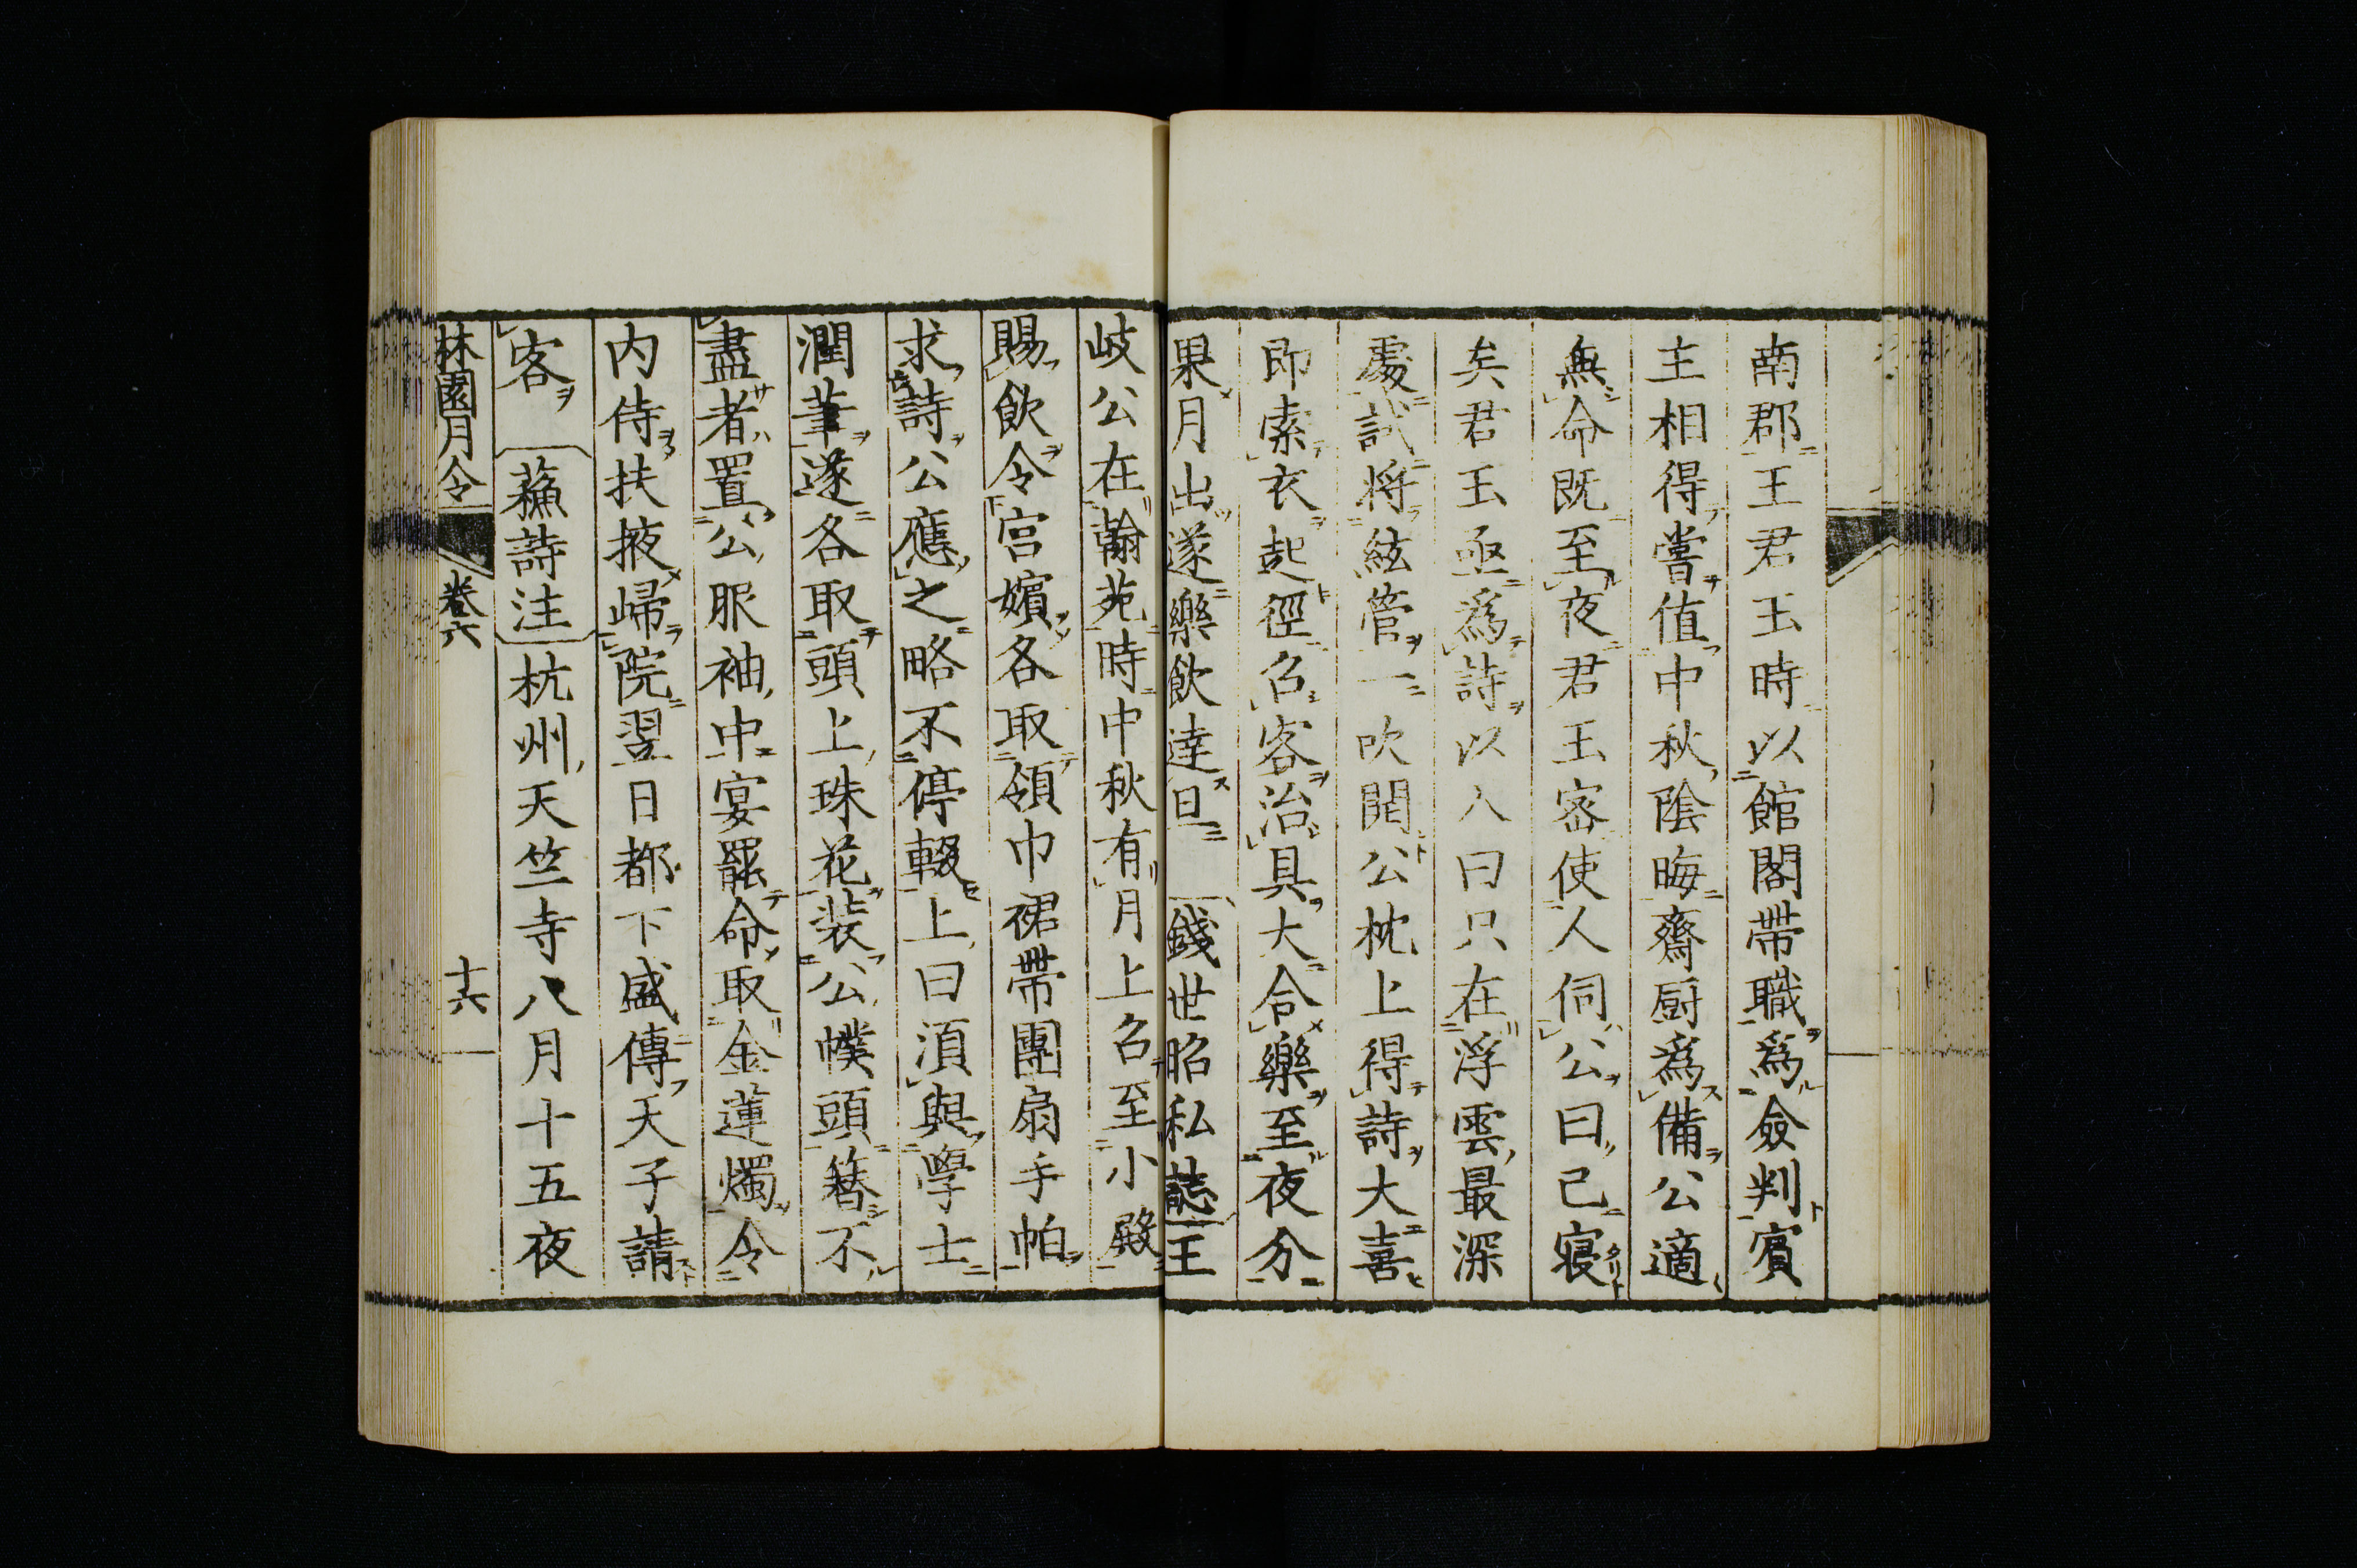 南郡王君玉時以館閣帶職爲僉判賓
主相得嘗值中秋陰晦齋厨爲備公適
無命既至夜君玉密使人伺公曰已寢
矣君玉亟爲詩以入曰只在浮雲最深
處試將絃管一吹開公枕上得詩大喜
即索衣起徑召客治具大合樂至夜分
果月出遂樂飲達旦 錢世昭私誌 王
岐公在翰苑時中秋有月上召至小殿
賜飲令宮嬪各取領巾裙帶團扇手帕
求詩公應之略不停輟上曰須與學士
潤筆遂各取頭上珠花裝公幞頭簪不
盡者置公服袖中宴罷命取金蓮燭令
内侍扶掖歸院翌日都下盛傳天子請
客 蘇詩注 杭州天竺寺八月十五夜
林園月令 卷六 十六